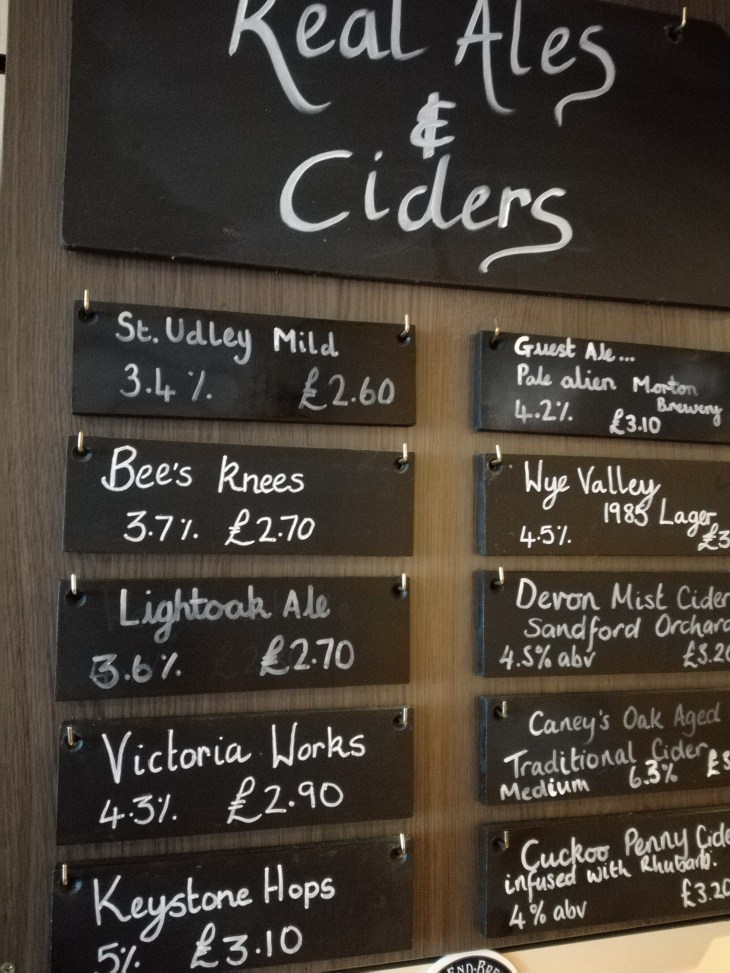 Real Ales
&
Ciders
St. Udley Mild
3.4 %. £2.60
Bee's Knees
3.7%. £2.70
Lightoak Ale
3.6%. £2.70
Victoria Works
4.3%. £2.90
Keystone Hops
5% £3.10
Guest Ale...
Pale alien Morton
Brewery
4.2%. £3.10
Wye Valley
1985 Lager
4.5%. £3
Devon Mist Cider
Sandford Orchard
4.5% abv £3.20
Caney's Oak Aged
Traditional Cider
Medium 6.3%
Cuckoo Penny Cide
infused with Rhubarb.
4% abv £3.20